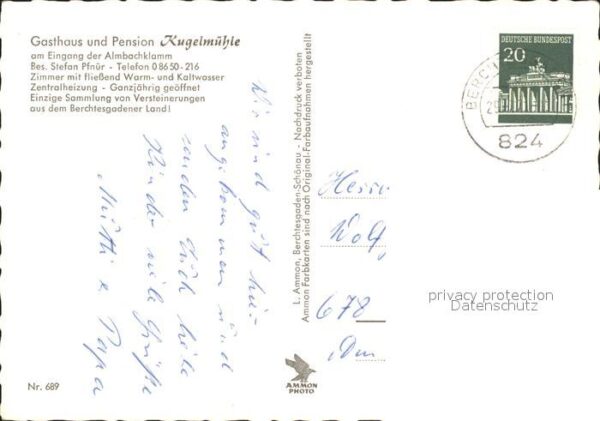 Gasthaus und Pension Kugelmühle
am Eingang der Almbachklamm
Bes. Stefan Pfnür - Telefon 08650-216
Zimmer mit fließend Warm- und Kaltwasser
Zentralheizung - Ganzjährig geöffnet
Einzige Sammlung von Versteinerungen
aus dem Berchtesgadener Land!
Wir sind gut hier
angekommen und
senden Euch liebe
Kinder viele Grüße
Mutti u. Papa
Nr. 689
L. Ammon, Berchtesgaden-Schönau - Nachdruck verboten
Ammon Farbkarten sind nach Original-Farbaufnahmen hergestellt
AMMON
PHOTO
DEUTSCHE BUNDESPOST
20
BERCH
824
Herrn
Wolf
678
privacy protection
Datenschutz